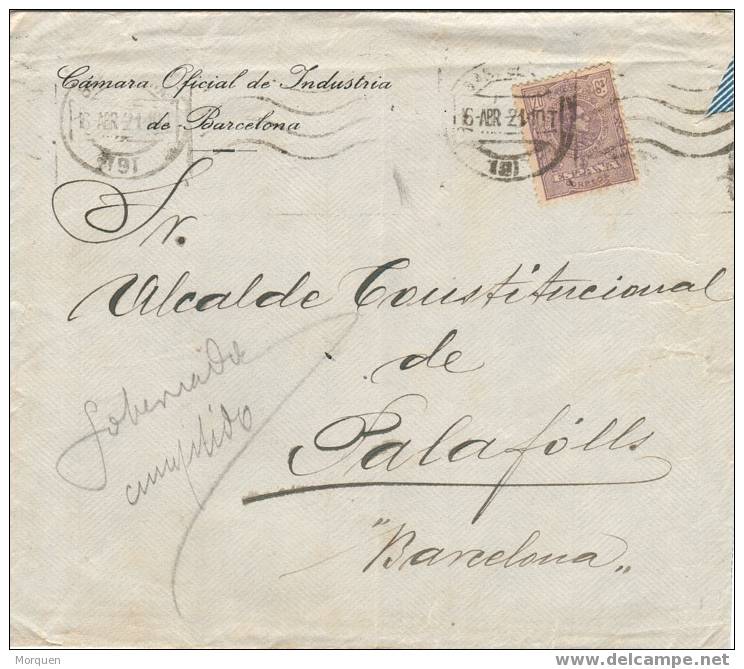 Cámara Oficial de Industria
de Barcelona
16 ABR 21
16 ABR 21
20
ESPAÑA
CORREOS
Sr.
Alcalde Constitucional
de
Palafólls
"Barcelona„
cumplido
Morquen
delcampe.net